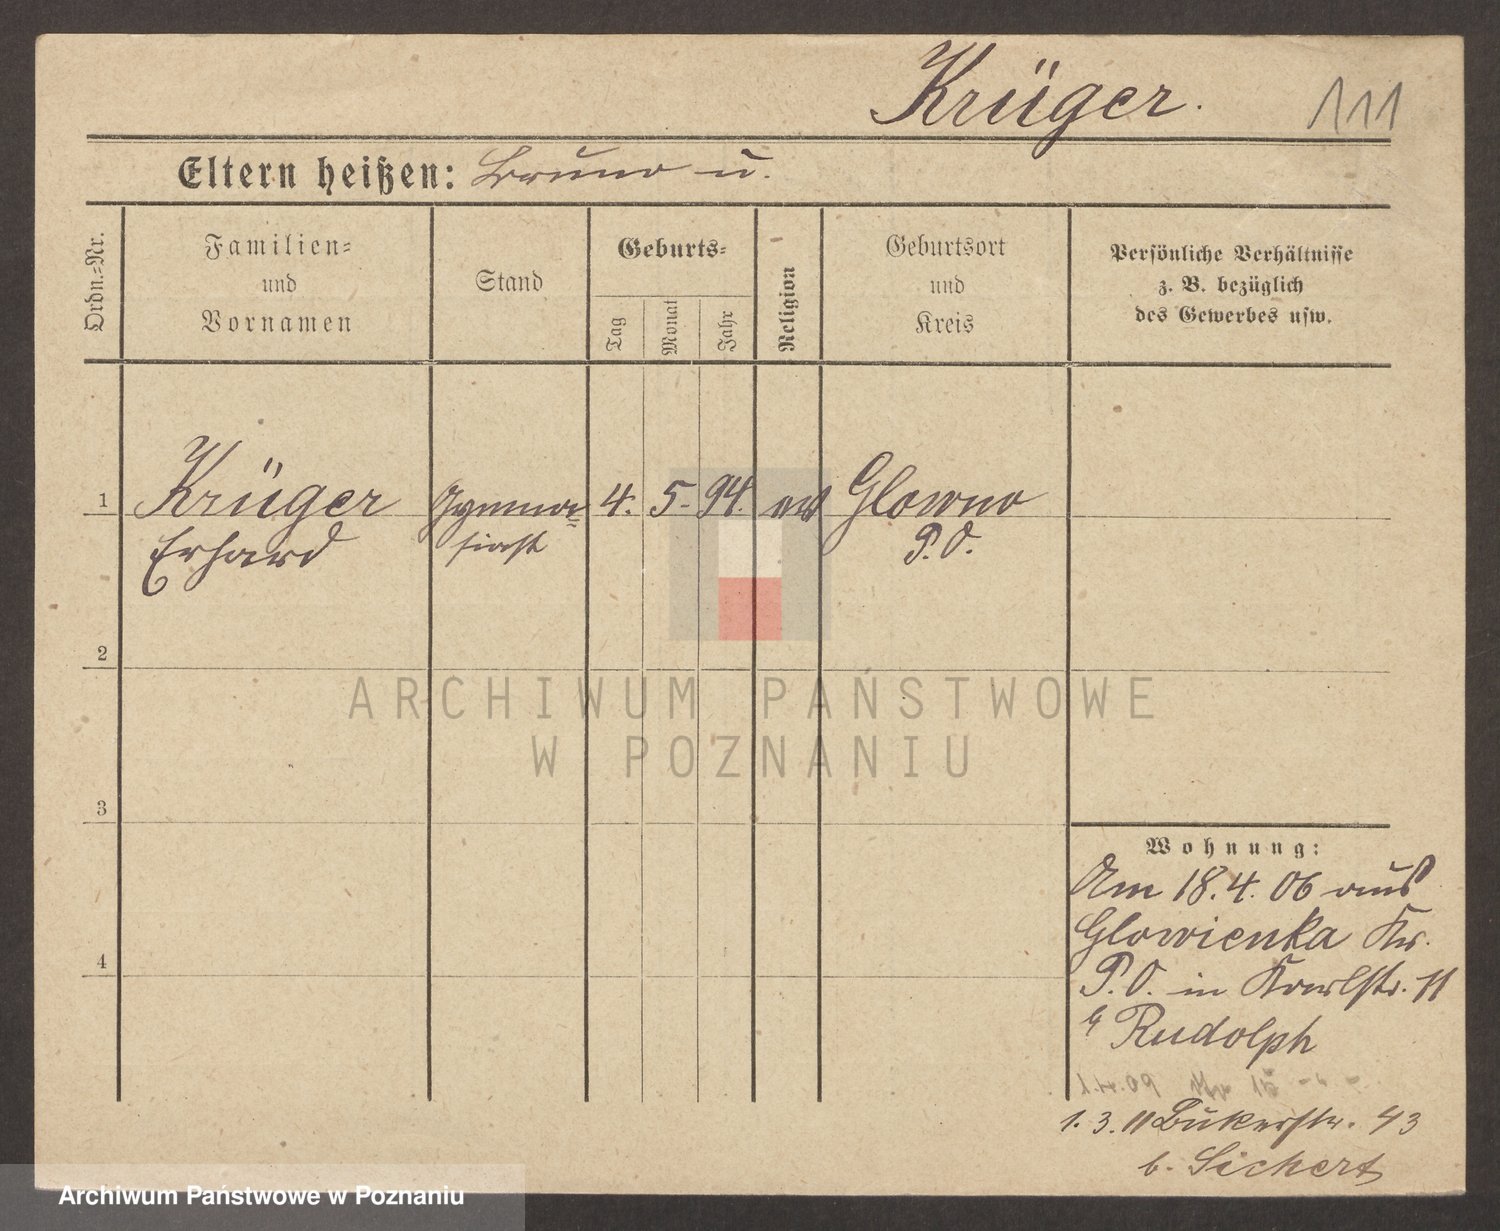 Krüger.
111
Eltern heißen: Bruno u.
Ordn.-Nr.
Familien-
und
Vornamen
Stand
Geburts-
Tag
Monat
Jahr
Religion
Geburtsort
und
Kreis
Persönliche Verhältnisse
z. B. bezüglich
des Gewerbes usw.
1 Krüger Gymna= 4. 5. 94. ev Glowno
Erhard siast P. O.
2
ARCHIWUM PAŃSTWOWE
W POZNANIU
3
Wohnung:
Am 18. 4. 06 aus
Glowienka Kr.
4
P. O. in Karlstr. 11
Rudolph
1. 3. 11 Bukerstr. 43
b. Sichert
Archiwum Państwowe w Poznaniu